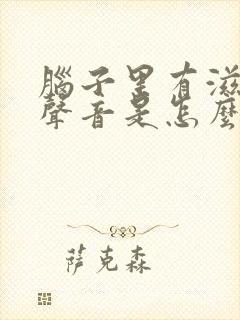 腦子里有滋
聲音是怎麼
萨克森